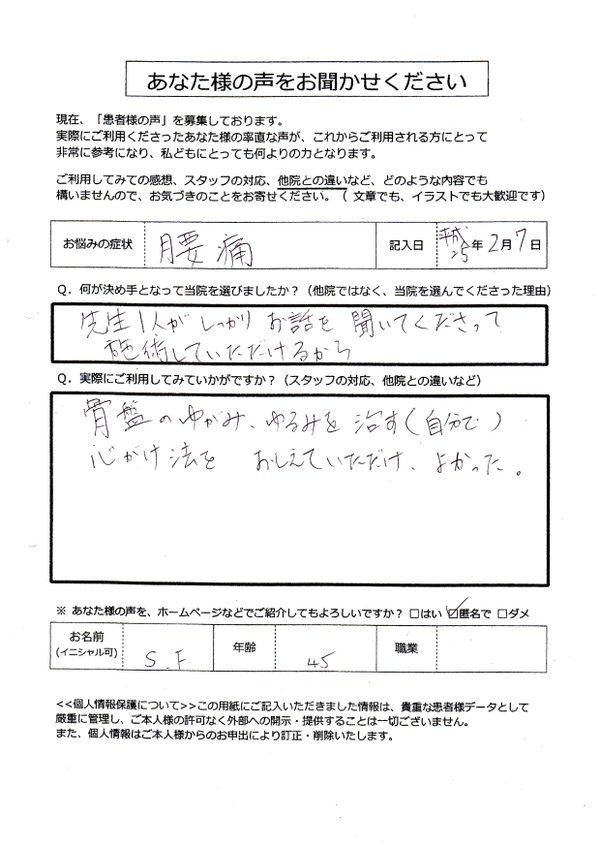 あなた様の声をお聞かせください
現在、「患者様の声」を募集しております。
実際にご利用くださったあなた様の率直な声が、これからご利用される方にとって
非常に参考になり、私どもにとっても何よりの力となります。
ご利用してみての感想、スタッフの対応、他院との違いなど、どのような内容でも
構いませんので、お気づきのことをお寄せください。（ 文章でも、イラストでも大歓迎です）
お悩みの症状 腰痛 記入日 平成25年2月7日
Q．何が決め手となって当院を選びましたか？（他院ではなく、当院を選んでくださった理由）
先生1人がしっかりお話を聞いてくださって
施術していただけるから
Q．実際にご利用してみていかがですか？（スタッフの対応、他院との違いなど）
骨盤のゆがみ、ゆるみを治す（自分で）
心がけ法を おしえていただけ、よかった。
※ あなた様の声を、ホームページなどでご紹介してもよろしいですか？ □はい ☑匿名で □ダメ
お名前 (イニシャル可) S.F 年齢 45 職業
<<個人情報保護について>>この用紙にご記入いただきました情報は、貴重な患者様データとして
厳重に管理し、ご本人様の許可なく外部への開示・提供することは一切ございません。
また、個人情報はご本人様からのお申出により訂正・削除いたします。